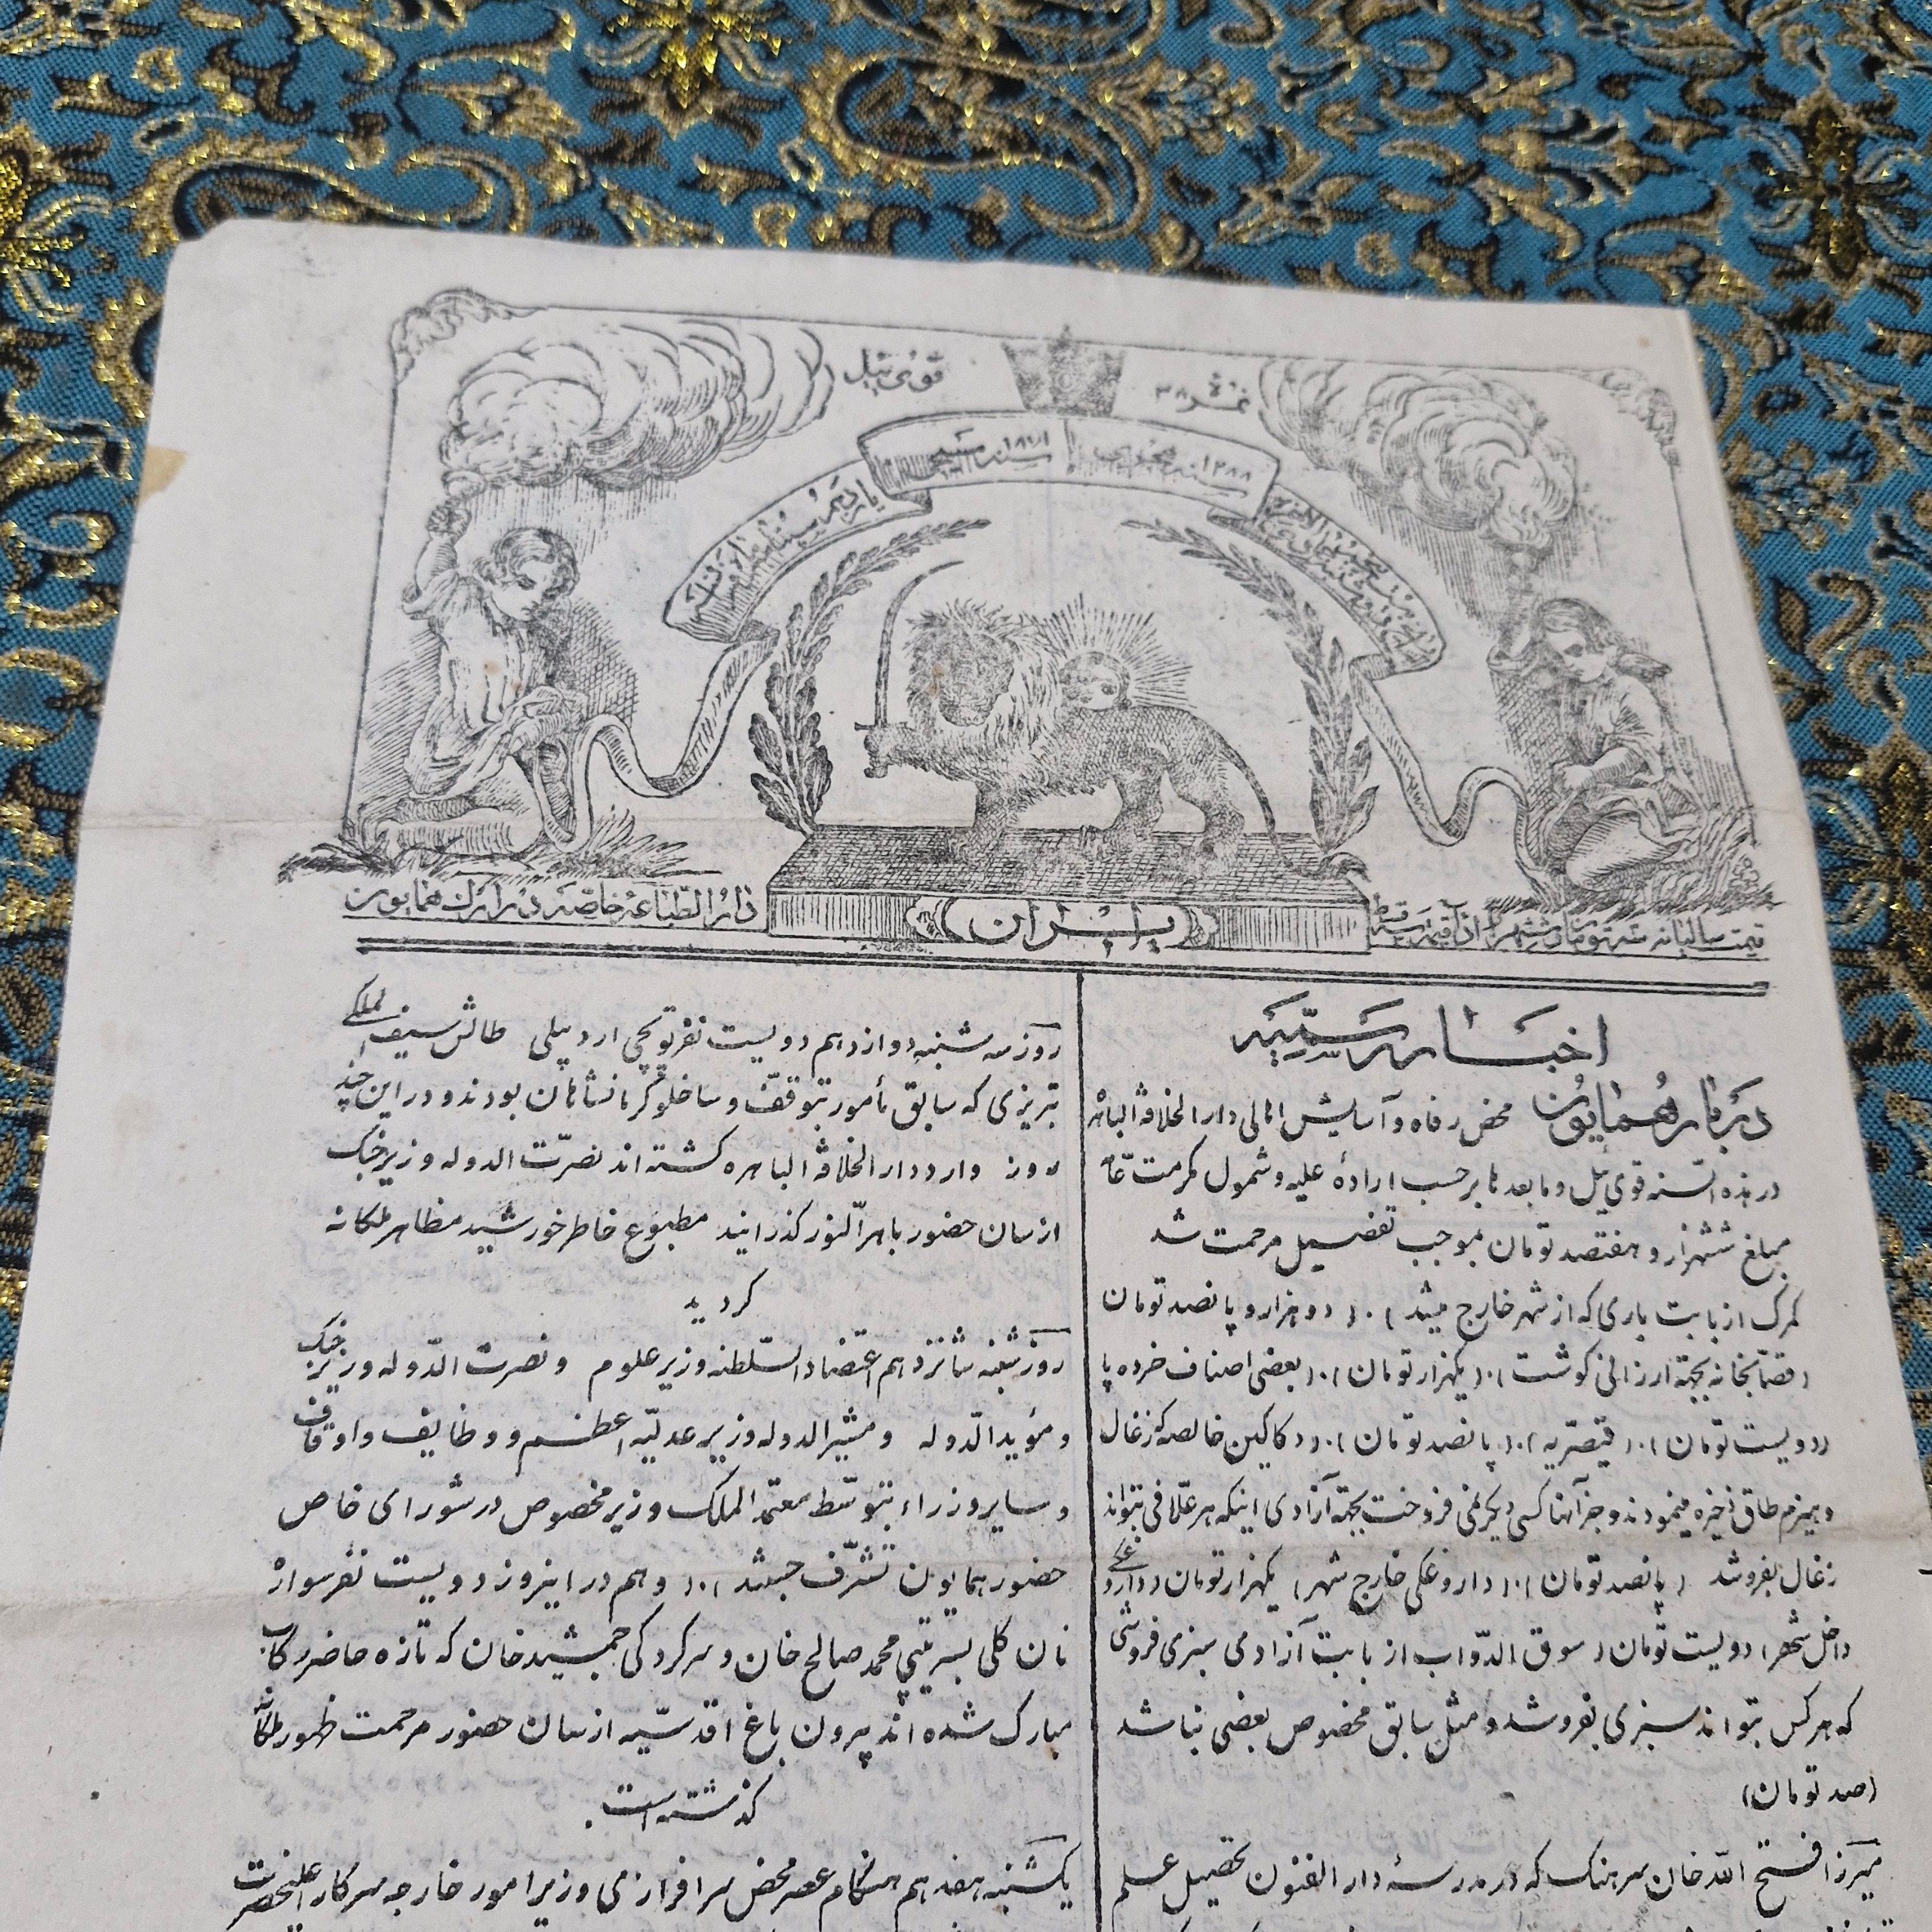 نمرۀ ۳۸
قوی ئیل
سنه ۱۲۸۸ هجری
سنه ۱۸۷۱ مسیحی
قیمت سالیانه
ایران
دار الطباعۀ خاصه در ارک همایون
اخبار رسمیه
دربار همایون محض رفاه و آسایش اهالی دار الخلافة الباهره
در هذه السنه قوی ئیل و ما بعد ها برحسب ارادۀ علیه و شمول مکرمت عامّه
مبلغ ششهزار و هفتصد تومان بموجب تفضیل مرحمت شد
کمرک از بابت باری که از شهر خارج میشد ).( دو هزار و پانصد تومان
(قصابخانه بجهة ارزانی کوشت ).( یکهزار تومان ).( بعضی اصناف خرده پا
(دویست تومان ).( قیصریه ).( پانصد تومان ).( دکاکین خالصه که زغال
و هیزم طاق ذخیره مینمودند و جز آنها کسی دیگر نمی فروخت بجهة آزادی اینکه هر علافی بتواند
زغال بفروشد ( پانصد تومان ).( داروغکی خارج شهر ) یکهزار تومان ( داروغکی
داخل شهر ) دویست تومان ( سوق الدواب از بابت آزادی سبزی فروشی
که هر کس بتواند سبزی بفروشد و مثل سابق مخصوص بعضی نباشد
(صد تومان)
میرزا فتح الله خان سرهنک که در مدرسۀ دار الفنون تحصیل علم
روز سه شنبه دوازدهم دویست نفر توپچی اردبیلی طالش سیف الملکی
تبریزی که سابق مأمور بتوقف و ساخلو کرمانشاهان بودند و در این چند
روز وارد دار الخلافة الباهره کشته اند نصرت الدوله وزیر جنک
از سان حضور باهر النور کذرانید مطبوع خاطر خورشید مظاهر ملکانه
کردید
روز شنبه شانزدهم اعتضاد السلطنه وزیر علوم و نصرت الدوله وزیر جنک
و مؤید الدوله و مشیر الدوله وزیر عدلیه اعظم و وظایف و اوقاف
و سایر وزراء بتوسط معتمد الملک وزیر مخصوص در شورای خاص
حضور همایون تشرف جستند ).( و هم در اینروز دویست نفر سواره
نان کلی بسرتیپی محمد صالح خان و سرکردکی جمشید خان که تازه حاضر رکاب
مبارک شده اند بیرون باغ اقدسیه از سان حضور مرحمت ظهور ملکانه
کذشته است.
یکشنبه هفدهم هنکام عصر محض سرافرازی وزیر امور خارجه سرکار اعلیحضرت